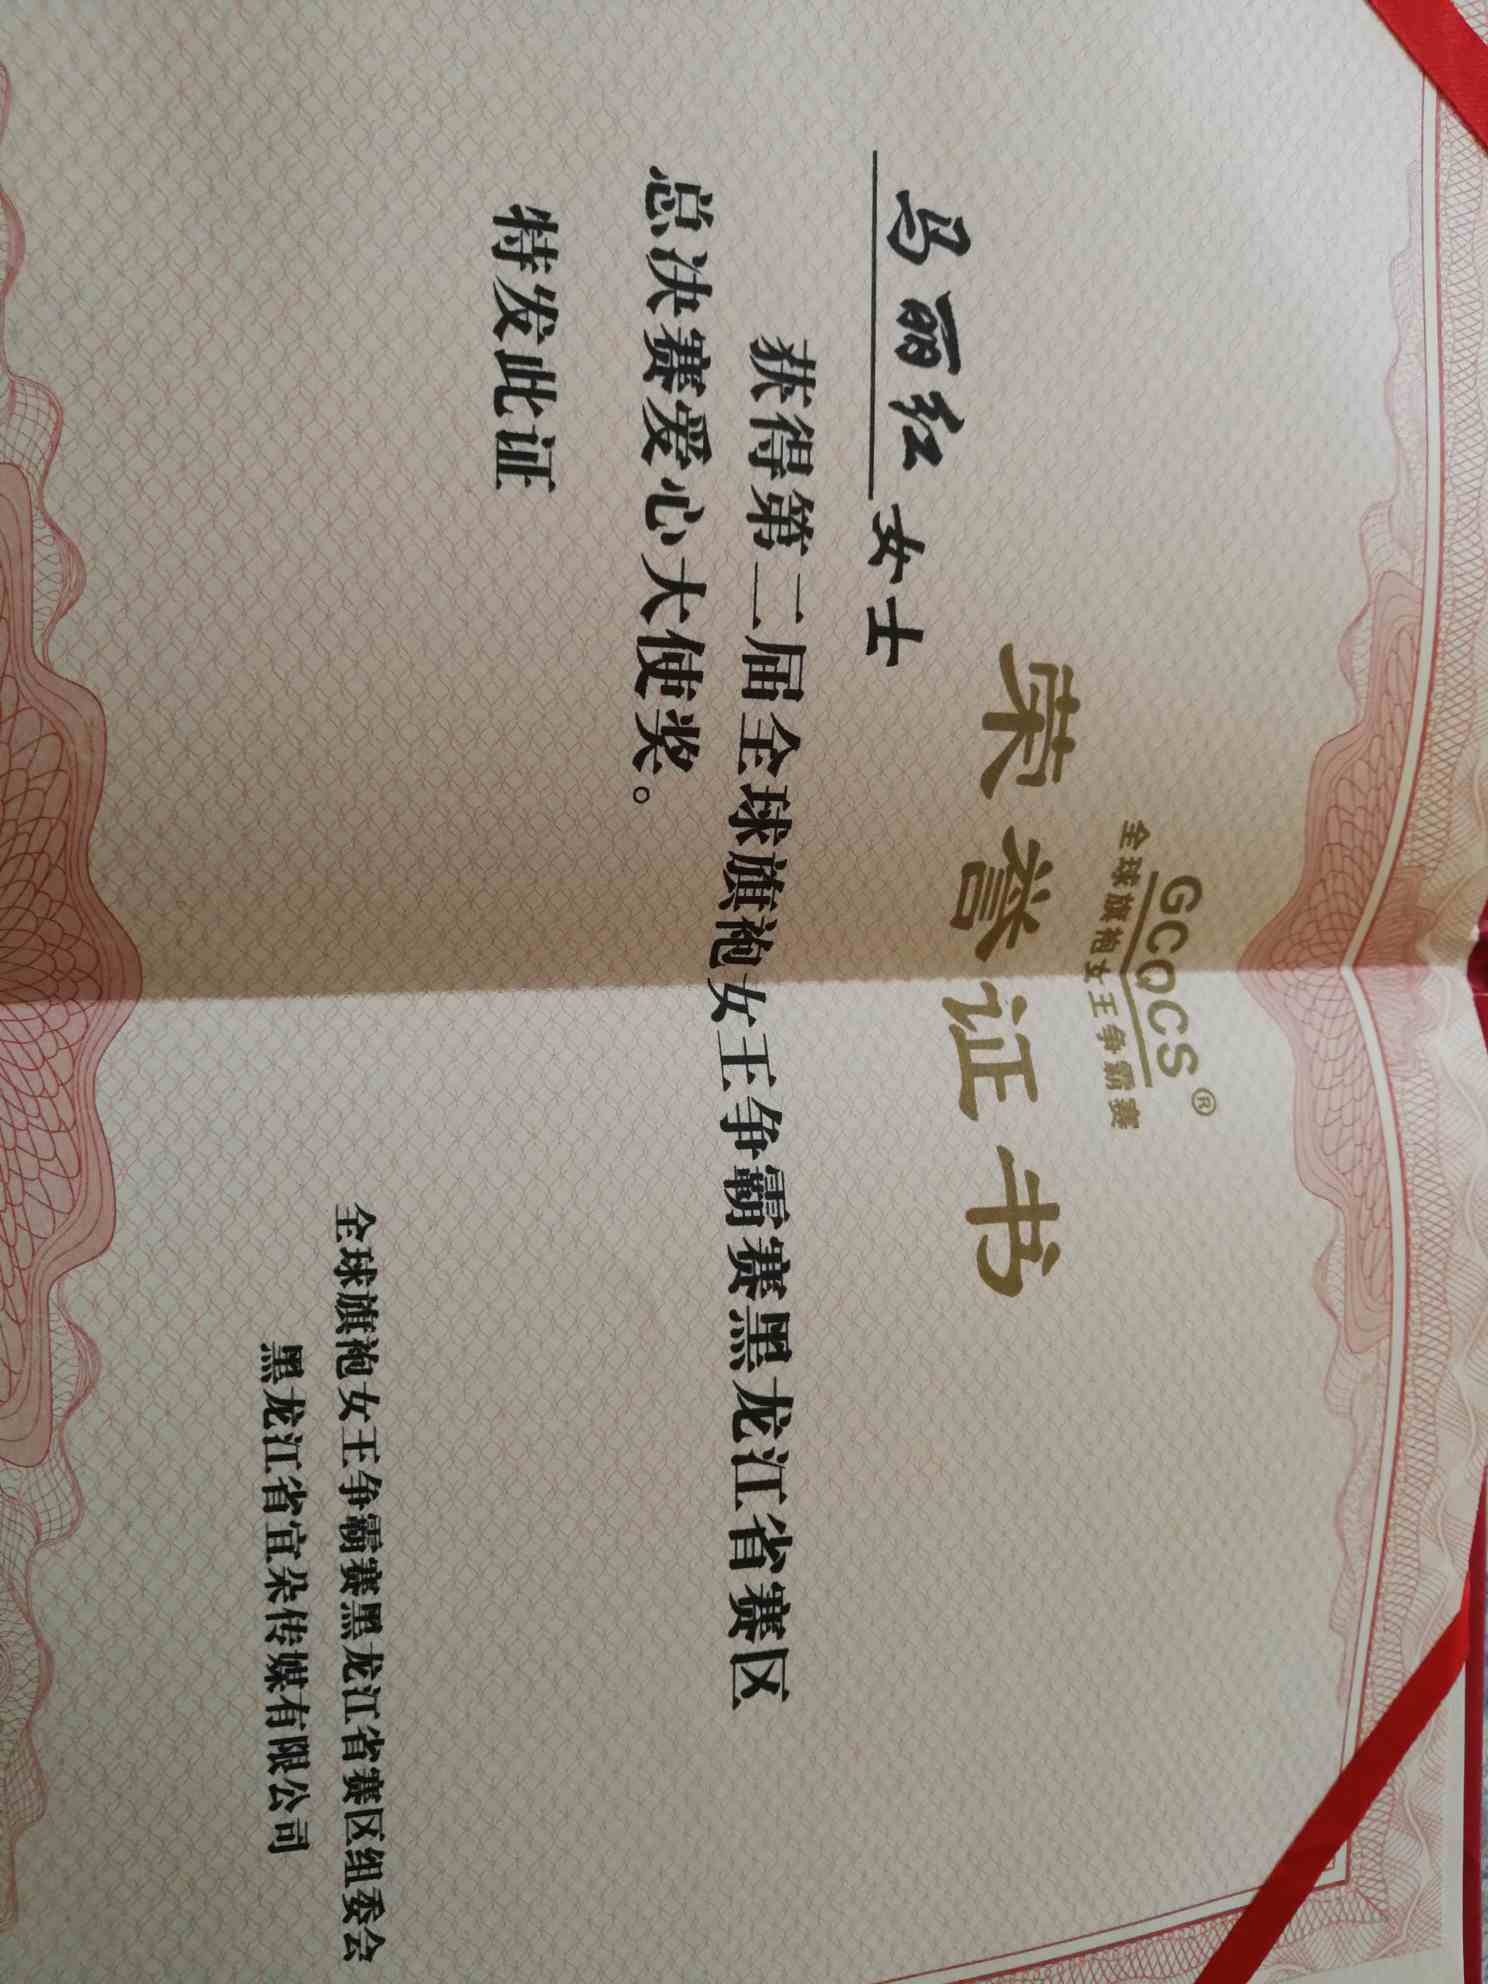 GCQCS®
全球旗袍女王争霸赛
荣誉证书
马丽红女士
获得第二届全球旗袍女王争霸赛黑龙江省赛区
总决赛爱心大使奖。
特发此证
全球旗袍女王争霸赛黑龙江省赛区组委会
黑龙江省宜朵传媒有限公司